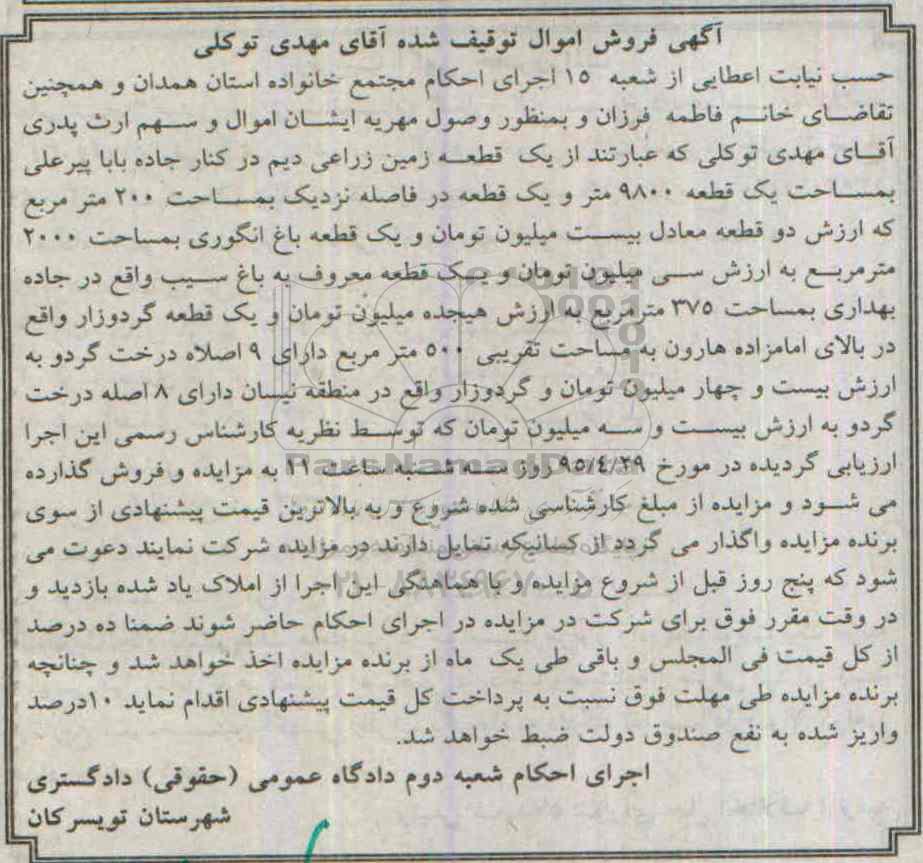 آگهی فروش اموال توقیف شده آقای مهدی توکلی
حسب نیابت اعطایی از شعبه ۱۵ اجرای احکام مجتمع خانواده استان همدان و همچنین
تقاضای خانم فاطمه فرزان و بمنظور وصول مهریه ایشان اموال و سهم ارث پدری
آقای مهدی توکلی که عبارتند از یک قطعه زمین زراعی دیم در کنار جاده بابا پیرعلی
بمساحت یک قطعه ۹۸۰۰ متر و یک قطعه در فاصله نزدیک بمساحت ۲۰۰ متر مربع
که ارزش دو قطعه معادل بیست میلیون تومان و یک قطعه باغ انگوری بمساحت ۲۰۰۰
مترمربع به ارزش سی میلیون تومان و یک قطعه معروف به باغ سیب واقع در جاده
بهداری بمساحت ۳۷۵ مترمربع به ارزش هیجده میلیون تومان و یک قطعه گردوزار واقع
در بالای امامزاده هارون به مساحت تقریبی ۵۰۰ متر مربع دارای ۹ اصلاه درخت گردو به
ارزش بیست و چهار میلیون تومان و گردوزار واقع در منطقه نیسان دارای ۸ اصله درخت
گردو به ارزش بیست و سه میلیون تومان که توسط نظریه کارشناس رسمی این اجرا
ارزیابی گردیده در مورخ ۹۵/٤/۲۹ روز سه شنبه ساعت ۱۱ به مزایده و فروش گذارده
می شود و مزایده از مبلغ کارشناسی شده شروع و به بالاترین قیمت پیشنهادی از سوی
برنده مزایده واگذار می گردد از کسانیکه تمایل دارند در مزایده شرکت نمایند دعوت می
شود که پنج روز قبل از شروع مزایده و با هماهنگی این اجرا از املاک یاد شده بازدید و
در وقت مقرر فوق برای شرکت در مزایده در اجرای احکام حاضر شوند ضمنا ده درصد
از کل قیمت فی المجلس و باقی طی یک ماه از برنده مزایده اخذ خواهد شد و چنانچه
برنده مزایده طی مهلت فوق نسبت به پرداخت کل قیمت پیشنهادی اقدام نماید ۱۰درصد
واریز شده به نفع صندوق دولت ضبط خواهد شد.
اجرای احکام شعبه دوم دادگاه عمومی (حقوقی) دادگستری
شهرستان تویسرکان